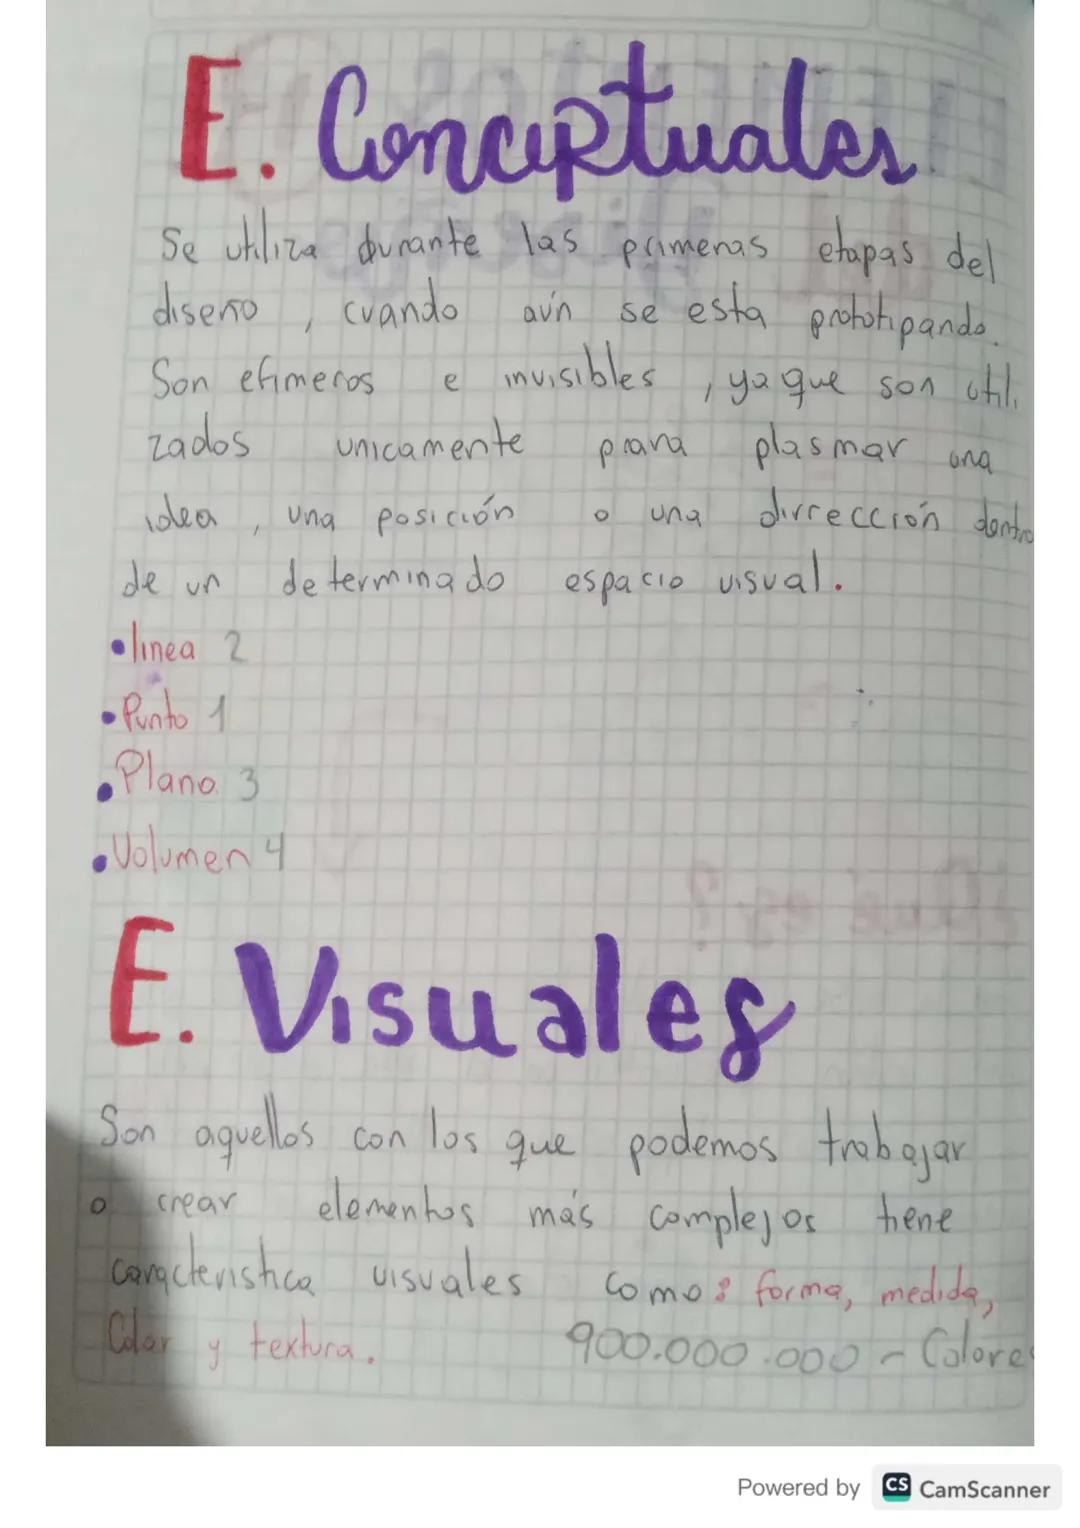 E. Conceptuales
Se utiliza durante las primeras etapas del
diseño, cuando aún se esta prototipando.
Son efimeros e invisibles, ya que son utili
zados unicamente prara plasmar una
idea, una posición o una dirrección dentro
de un determinado espacio visual.
• linea 2
• Punto 1
• Plano 3
• Volumen 4
E. Visuales
Son aquellos con los que podemos trabajar
o crear elementos más complejos tiene
caracteristica visuales como: forma, medida,
Color y textura. 900.000.000 - Colores
Powered by CS CamScanner